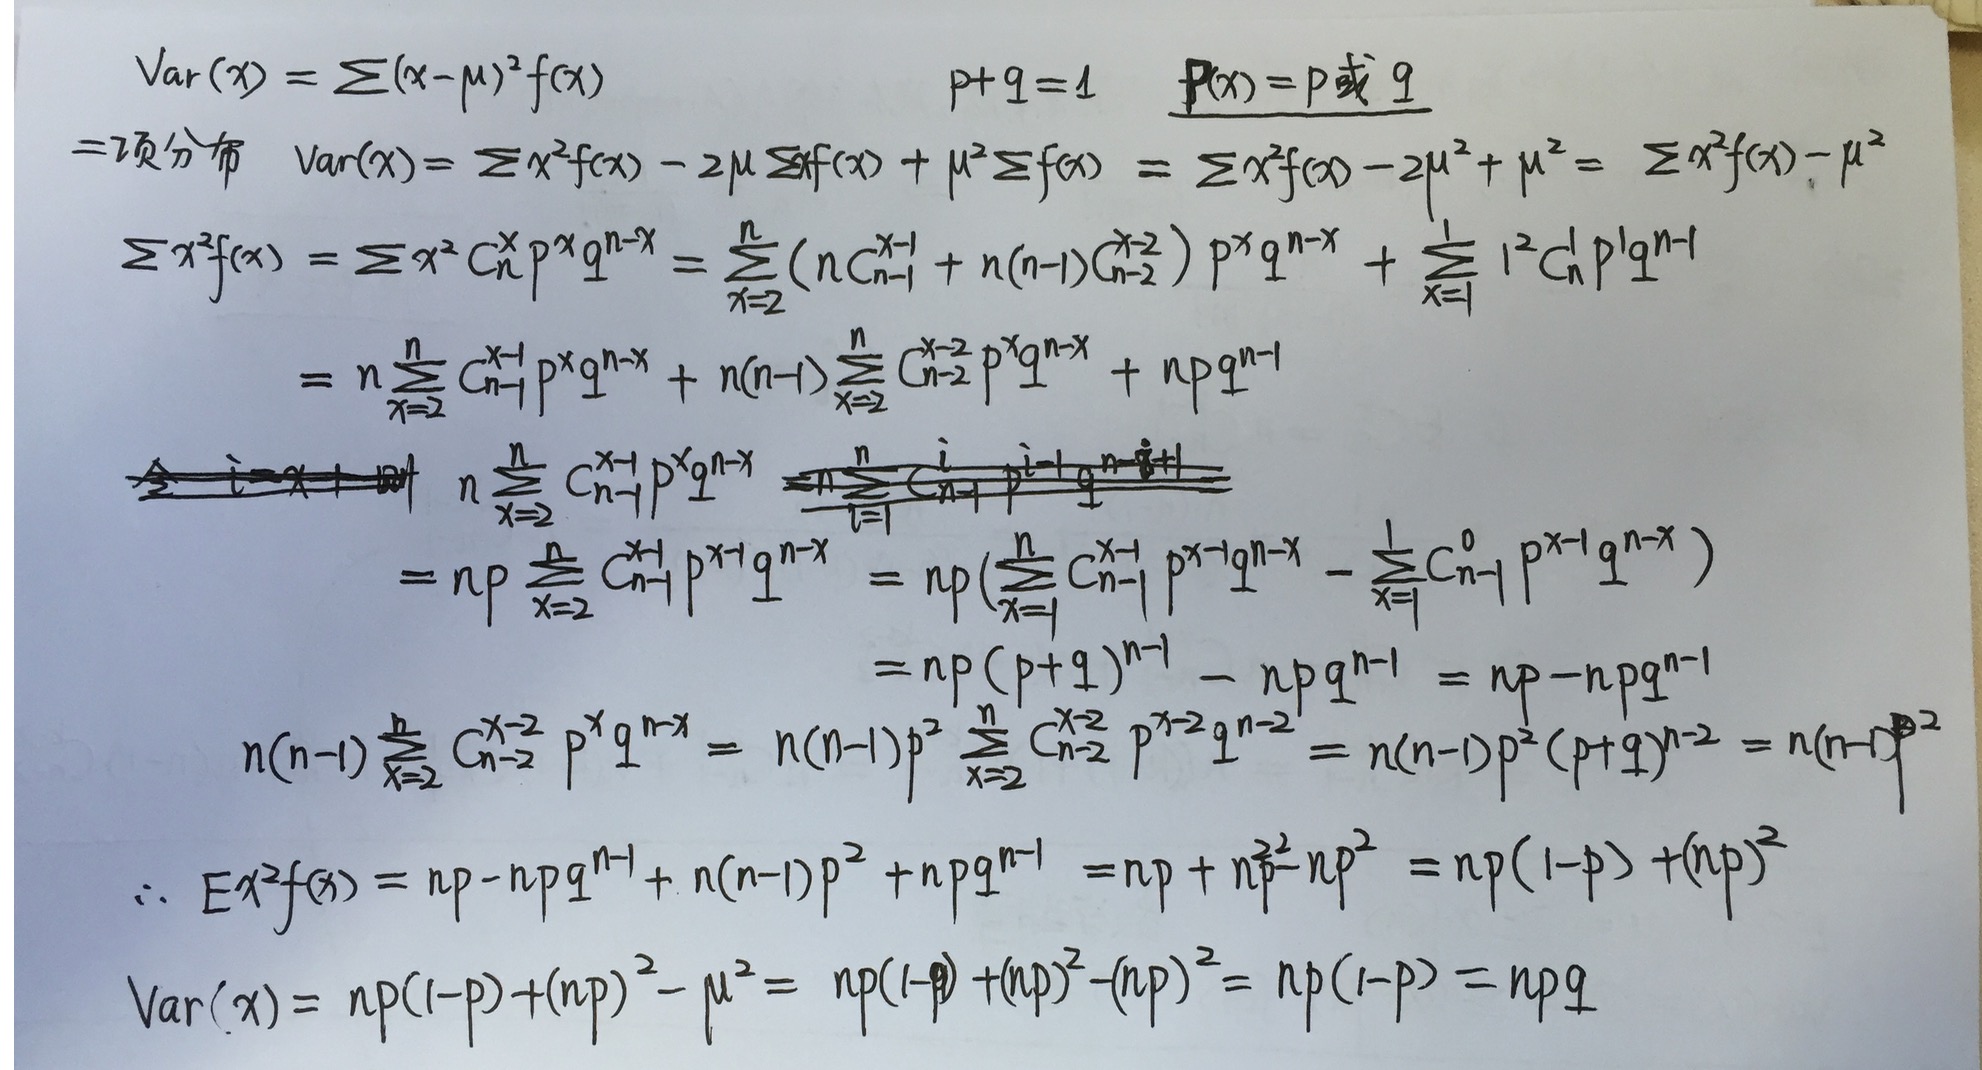 Var(x) = Σ(x-μ)² f(x) p+q=1 P(x)=p或q
二项分布 Var(x) = Σx²f(x) - 2μΣxf(x) + μ²Σf(x) = Σx²f(x) - 2μ² + μ² = Σx²f(x) - μ²
Σx²f(x) = Σx² C_n^x p^x q^{n-x} = Σ_{x=2}^n (nC_{n-1}^{x-1} + n(n-1)C_{n-2}^{x-2}) p^x q^{n-x} + Σ_{x=1}^1 1² C_n^1 p^1 q^{n-1}
= n Σ_{x=2}^n C_{n-1}^{x-1} p^x q^{n-x} + n(n-1) Σ_{x=2}^n C_{n-2}^{x-2} p^x q^{n-x} + npq^{n-1}
n Σ_{x=2}^n C_{n-1}^{x-1} p^x q^{n-x}
= np Σ_{x=2}^n C_{n-1}^{x-1} p^{x-1} q^{n-x} = np(Σ_{x=1}^n C_{n-1}^{x-1} p^{x-1} q^{n-x} - Σ_{x=1}^1 C_{n-1}^0 p^{x-1} q^{n-x})
= np(p+q)^{n-1} - npq^{n-1} = np - npq^{n-1}
n(n-1) Σ_{x=2}^n C_{n-2}^{x-2} p^x q^{n-x} = n(n-1)p² Σ_{x=2}^n C_{n-2}^{x-2} p^{x-2} q^{n-2} = n(n-1)p²(p+q)^{n-2} = n(n-1)p²
∴ Ex²f(x) = np - npq^{n-1} + n(n-1)p² + npq^{n-1} = np + n²p² - np² = np(1-p) + (np)²
Var(x) = np(1-p) + (np)² - μ² = np(1-p) + (np)² - (np)² = np(1-p) = npq